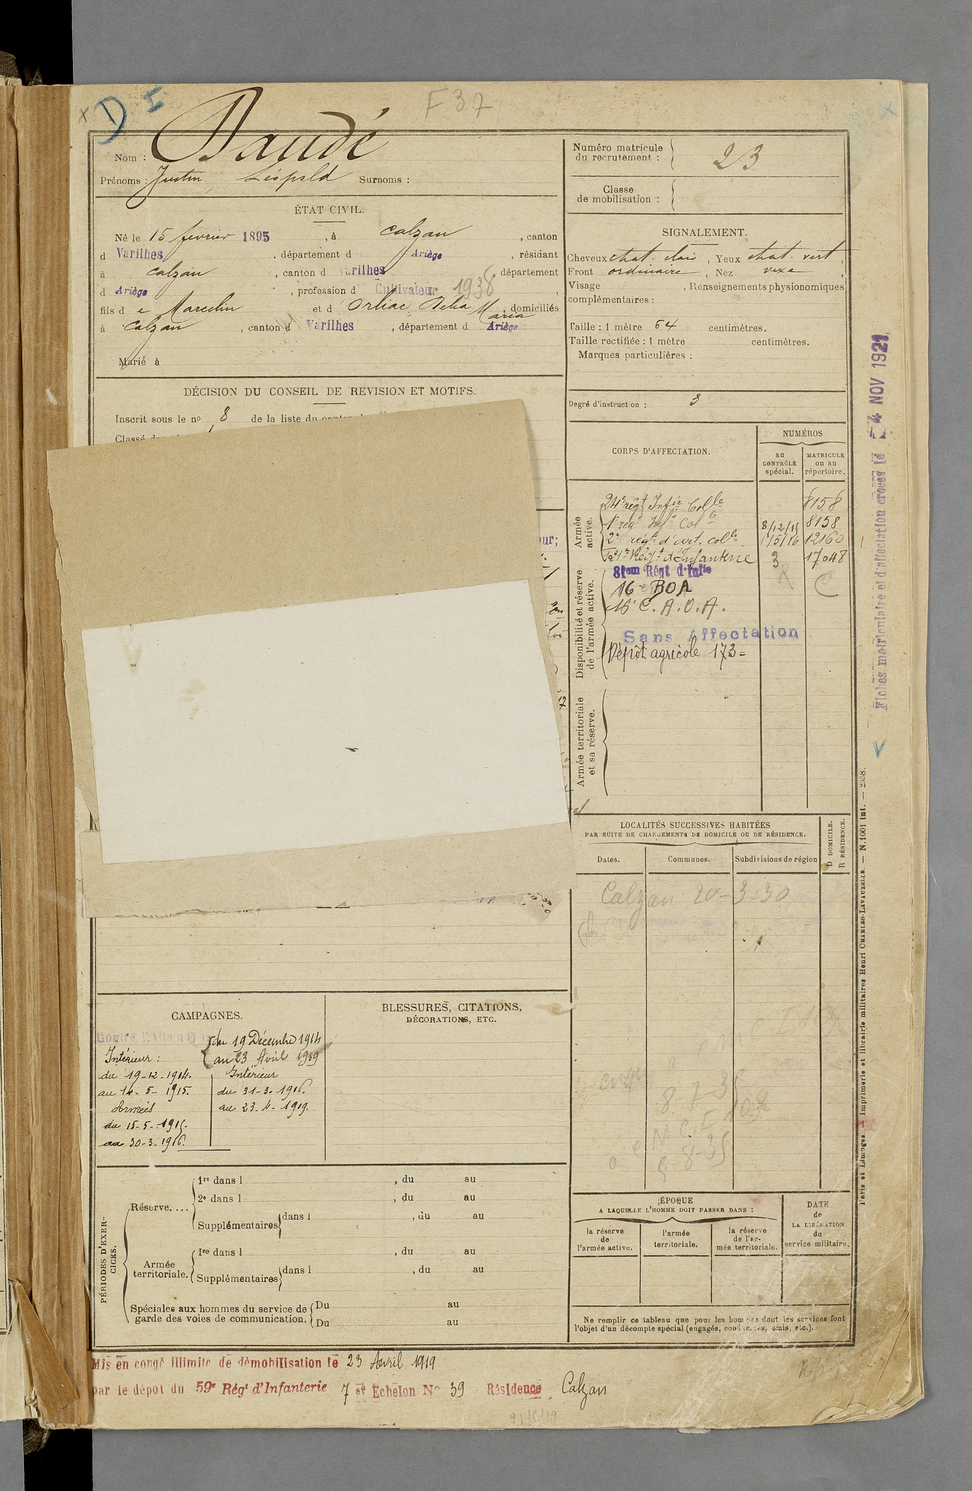 D I
F 37
Nom : Daudé
Prénoms : Justin Léopold Surnoms :
Numéro matricule du recrutement : 23
Classe de mobilisation :
ÉTAT CIVIL.
Né le 15 février 1895, à Calzan, canton
d Varilhes, département d Ariège, résidant
à Calzan, canton d Varilhes département
d Ariège, profession d Cultivateur 1938
fils d e Marcelin et d Orliac, Delia Maria, domiciliés
à Calzan, canton d Varilhes, département d Ariège
Marié à
DÉCISION DU CONSEIL DE REVISION ET MOTIFS.
Inscrit sous le nº 8 de la liste du
Classé
SIGNALEMENT.
Cheveux chat. clair, Yeux chat. vert,
Front ordinaire, Nez vexe
Visage , Renseignements physionomiques
complémentaires :
Taille : 1 mètre 64 centimètres.
Taille rectifiée : 1 mètre centimètres.
Marques particulières :
Degré d'instruction : 3
CORPS D'AFFECTATION.
NUMÉROS
AU CONTRÔLE spécial.
MATRICULE OU AU répertoire.
Armée active.
24e régt Infie Colle 8158
1er régt Infie Colle 8/12/15 8158
2e régt d'art. colle 1/5/16 12160
Régt d'Infanterie 3 17048
Disponibilité et réserve de l'armée active.
81em Régt d'Infie
16e BOA
16e C.A.O.A.
Sans Affectation
Dépôt agricole 173=
Armée territoriale et sa réserve.
Fiches matriculaire et d'affectation créées le 24 NOV 1921
LOCALITÉS SUCCESSIVES HABITÉES
PAR SUITE DE CHANGEMENTS DE DOMICILE OU DE RÉSIDENCE.
Dates.
Communes.
Subdivisions de région
D DOMICILE.
R RÉSIDENCE.
Calzan 20-3-30
CAMPAGNES.
du 19 Décembre 1914
au 23 Avril 1919
Intérieur :
du 19-12-1914.
au 14-5-1915.
Armées
du 15-5-1915.
au 30-3-1916.
Intérieur
du 31-3-1916.
au 23-4-1919.
BLESSURES, CITATIONS,
DÉCORATIONS, ETC.
8-7-35
8-8-35
PÉRIODES D'EXERCICES.
Réserve....
1re dans l , du au
2e dans l , du au
Supplémentaires dans l , du au
Armée territoriale.
1re dans l , du au
Supplémentaires dans l , du au
Spéciales aux hommes du service de garde des voies de communication.
Du au
Du au
ÉPOQUE
A LAQUELLE L'HOMME DOIT PASSER DANS :
la réserve de l'armée active.
l'armée territoriale.
la réserve de l'armée territoriale.
DATE de LA LIBÉRATION du service militaire.
Ne remplir ce tableau que pour les hommes dont les services font
l'objet d'un décompte spécial (engagés, condamnés, omis, etc.).
Paris et Limoges. — Imprimerie et librairie militaires Henri CHARLES-LAVAUZELLE. — N. 1001 int. — 2558.
Mis en congé illimité de démobilisation le 23 Avril 1919
par le dépôt du 59e Régt d'Infanterie 7 et Echelon No 39 Résidence Calzan